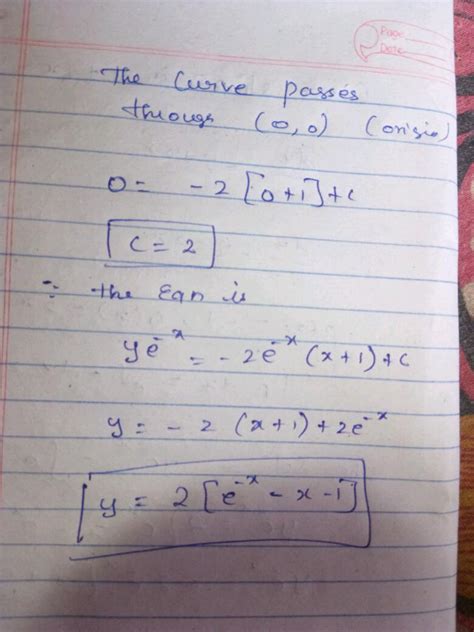 Page
Date
The Curve passes
through (0,0) (origin)
0 = - 2 [0+1] + c
c = 2
∵ the Eqn is
ye^{-x} = - 2e^{-x} (x+1) + c
y = - 2 (x+1) + 2e^{-x}
y = 2 [e^{-x} - x - 1]